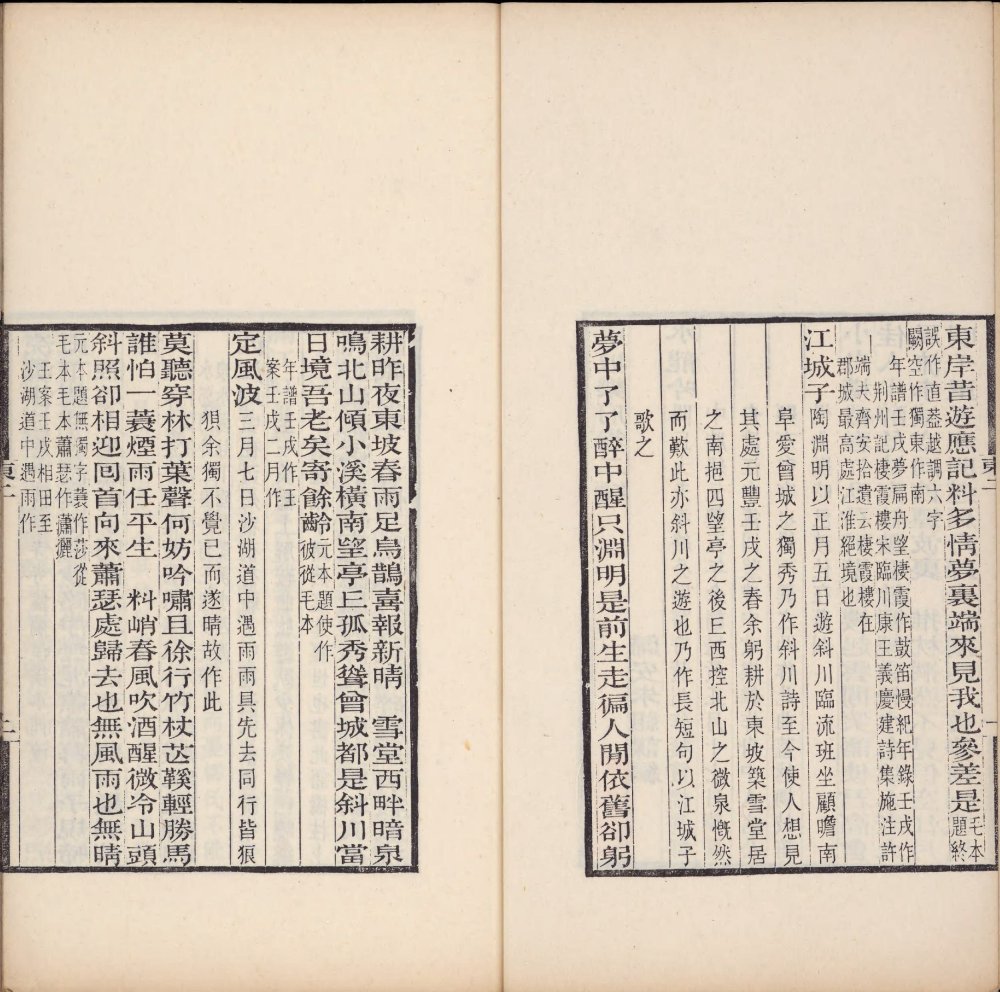 東岸昔遊應記料多情夢裏端來見我也參差是毛本題終
誤作直葢越調六字
闕空作獨東作南
年譜壬戌夢扁舟望棲霞作鼓笛慢紀年錄壬戌作
荆州記棲霞樓宋臨川康王義慶建詩集施注許
端夫齊安拾遺云棲霞樓在
郡城最高處江淮絕境也
江城子陶淵明以正月五日遊斜川臨流班坐顧瞻南
阜愛曾城之獨秀乃作斜川詩至今使人想見
其處元豐壬戌之春余躬耕於東坡築雪堂居
之南挹四望亭之後丘西控北山之微泉慨然
而歎此亦斜川之遊也乃作長短句以江城子
歌之
夢中了了醉中醒只淵明是前生走徧人閒依舊卻躬
耕昨夜東坡春雨足烏鵲喜報新晴 雪堂西畔暗泉
鳴北山傾小溪橫南望亭丘孤秀聳曾城都是斜川當
日境吾老矣寄餘齡元本題使作彼從毛本
年譜壬戌作王
案壬戌二月作
定風波三月七日沙湖道中遇雨雨具先去同行皆狼
狽余獨不覺已而遂晴故作此
莫聽穿林打葉聲何妨吟嘯且徐行竹杖芒鞵輕勝馬
誰怕一蓑煙雨任平生 料峭春風吹酒醒微冷山頭
斜照卻相迎回首向來蕭瑟處歸去也無風雨也無晴
元本題無獨字蓑作莎從
毛本毛本蕭瑟作瀟灑
王案壬戌相田至
沙湖道中遇雨作